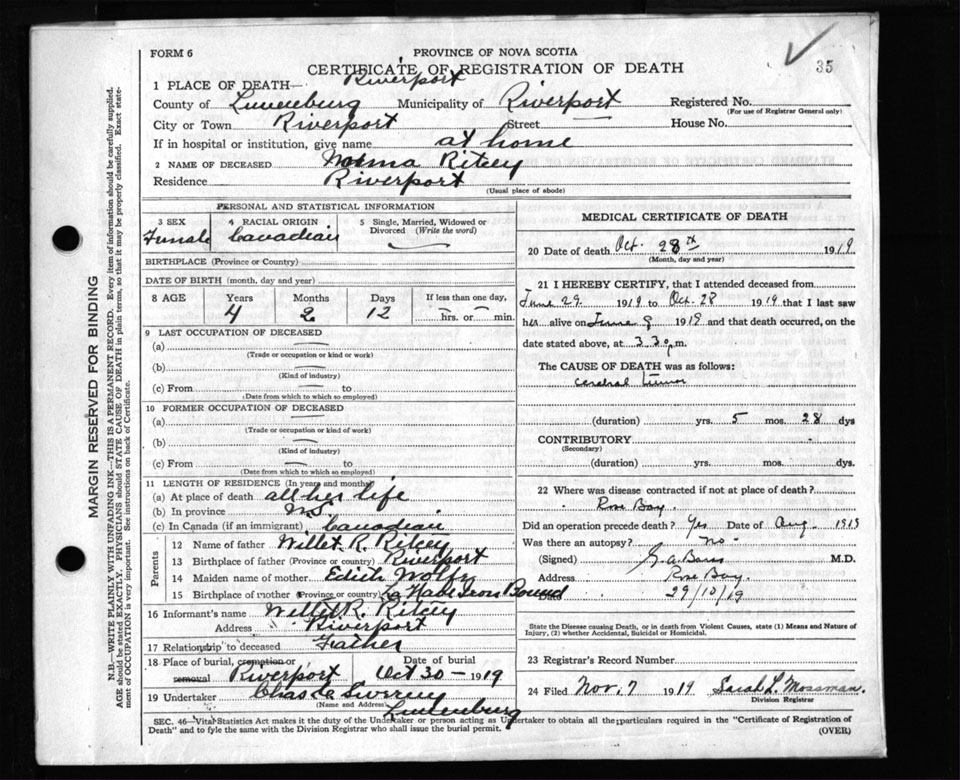 FORM 6
PROVINCE OF NOVA SCOTIA
35
CERTIFICATE OF REGISTRATION OF DEATH
1 PLACE OF DEATH— Riverport
County of Lunenburg Municipality of Riverport Registered No.
(For use of Registrar General only)
City or Town Riverport Street House No.
If in hospital or institution, give name at home
2 NAME OF DECEASED Norma Ritcey
Residence Riverport
(Usual place of abode)
PERSONAL AND STATISTICAL INFORMATION
3 SEX 4 RACIAL ORIGIN 5 Single, Married, Widowed or
Divorced (Write the word)
Female Canadian
BIRTHPLACE (Province or Country)
DATE OF BIRTH (month, day and year)
8 AGE Years Months Days If less than one day,
4 2 12 hrs. or min.
9 LAST OCCUPATION OF DECEASED
(a)
(Trade or occupation or kind or work)
(b)
(Kind of industry)
(c) From to
(Date from which to which so employed)
10 FORMER OCCUPATION OF DECEASED
(a)
(Trade or occupation or kind of work)
(b)
(Kind of industry)
(c) From to
(Date from which to which so employed)
11 LENGTH OF RESIDENCE (In years and months)
(a) At place of death all her life
(b) In province N.S.
(c) In Canada (if an immigrant) Canadian
Parents
12 Name of father Willet R. Ritcey
13 Birthplace of father (Province or country) Riverport
14 Maiden name of mother Edith Wolfe
15 Birthplace of mother (Province or country) La Have Iron Bound
16 Informant's name Willet R. Ritcey
Address Riverport
17 Relationship to deceased Father
18 Place of burial, cremation or Date of burial
removal Riverport Oct 30 — 1919
19 Undertaker Chas
(Name and Address) Lunenburg
MEDICAL CERTIFICATE OF DEATH
20 Date of death Oct. 28th 1919
(Month, day and year)
21 I HEREBY CERTIFY, that I attended deceased from
June 29 1919 to Oct. 28 1919 that I last saw
her alive on June 9 1919 and that death occurred, on the
date stated above, at 3.30 p.m.
The CAUSE OF DEATH was as follows:
cerebral tumor
(duration) yrs. 5 mos. 28 dys
CONTRIBUTORY
(Secondary)
(duration) yrs. mos. dys.
22 Where was disease contracted if not at place of death?
Rose Bay.
Did an operation precede death? Yes Date of Aug. 1919
Was there an autopsy? no
(Signed) M.D.
Address Rose Bay.
Date 29/10/19
State the Disease causing Death, or in death from Violent Causes, state (1) Means and Nature of
Injury, (2) whether Accidental, Suicidal or Homicidal.
23 Registrar's Record Number
24 Filed Nov. 7 1919 Sarah L. Mossman.
Division Registrar
SEC. 46—Vital Statistics Act makes it the duty of the Undertaker or person acting as Undertaker to obtain all the particulars required in the "Certificate of Registration of
Death" and to fyle the same with the Division Registrar who shall issue the burial permit.
(OVER)
MARGIN RESERVED FOR BINDING
N.B.—WRITE PLAINLY WITH UNFADING INK—THIS IS A PERMANENT RECORD. Every item of information should be carefully supplied.
AGE should be stated EXACTLY. PHYSICIANS should STATE CAUSE OF DEATH in plain terms, so that it may be properly classified. Exact state-
ment of OCCUPATION is very important. See instructions on back of Certificate.